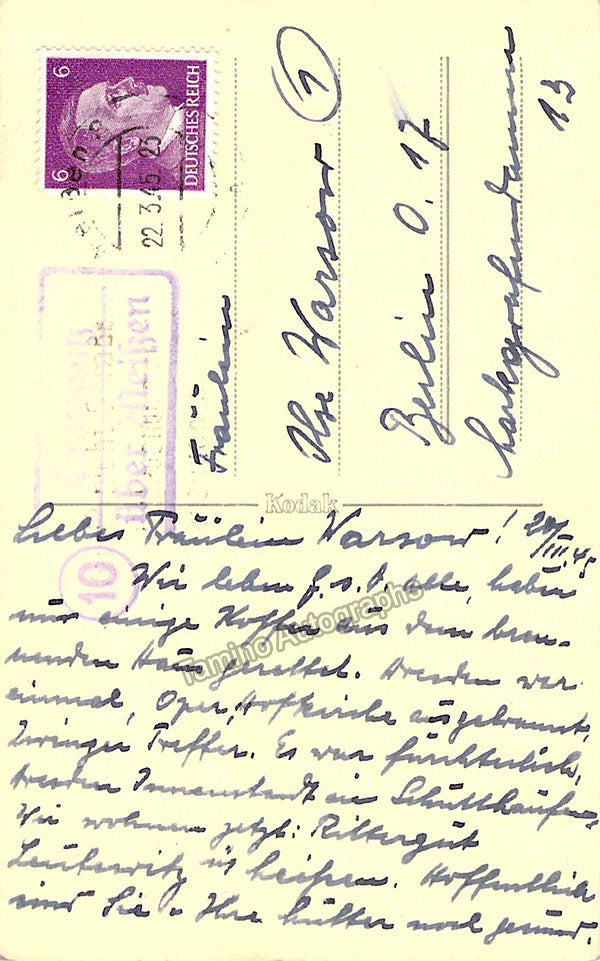 6
6
DEUTSCHES REICH
22.3.45 25
über Meißen
10
1
Fräulein
Ilse Warsow
Berlin O. 17
Markgrafendamm
13
Kodak
Liebes Fräulein Warsow! 20/III.45
Wir leben G. s. D. alle, haben
nur einige Koffer aus dem bren-
nenden Haus gerettet. Dresden war
einmal, Oper, Hofkirche ausgebrannt,
Zwinger Treffer. Es war fürchterlich,
Dresden Innenstadt ein Schutthaufen.
Wir wohnen jetzt: Rittergut
Leutewitz üb Meißen. Hoffentlich
sind Sie u. Ihre Mutter noch gesund.
Tamino Autographs